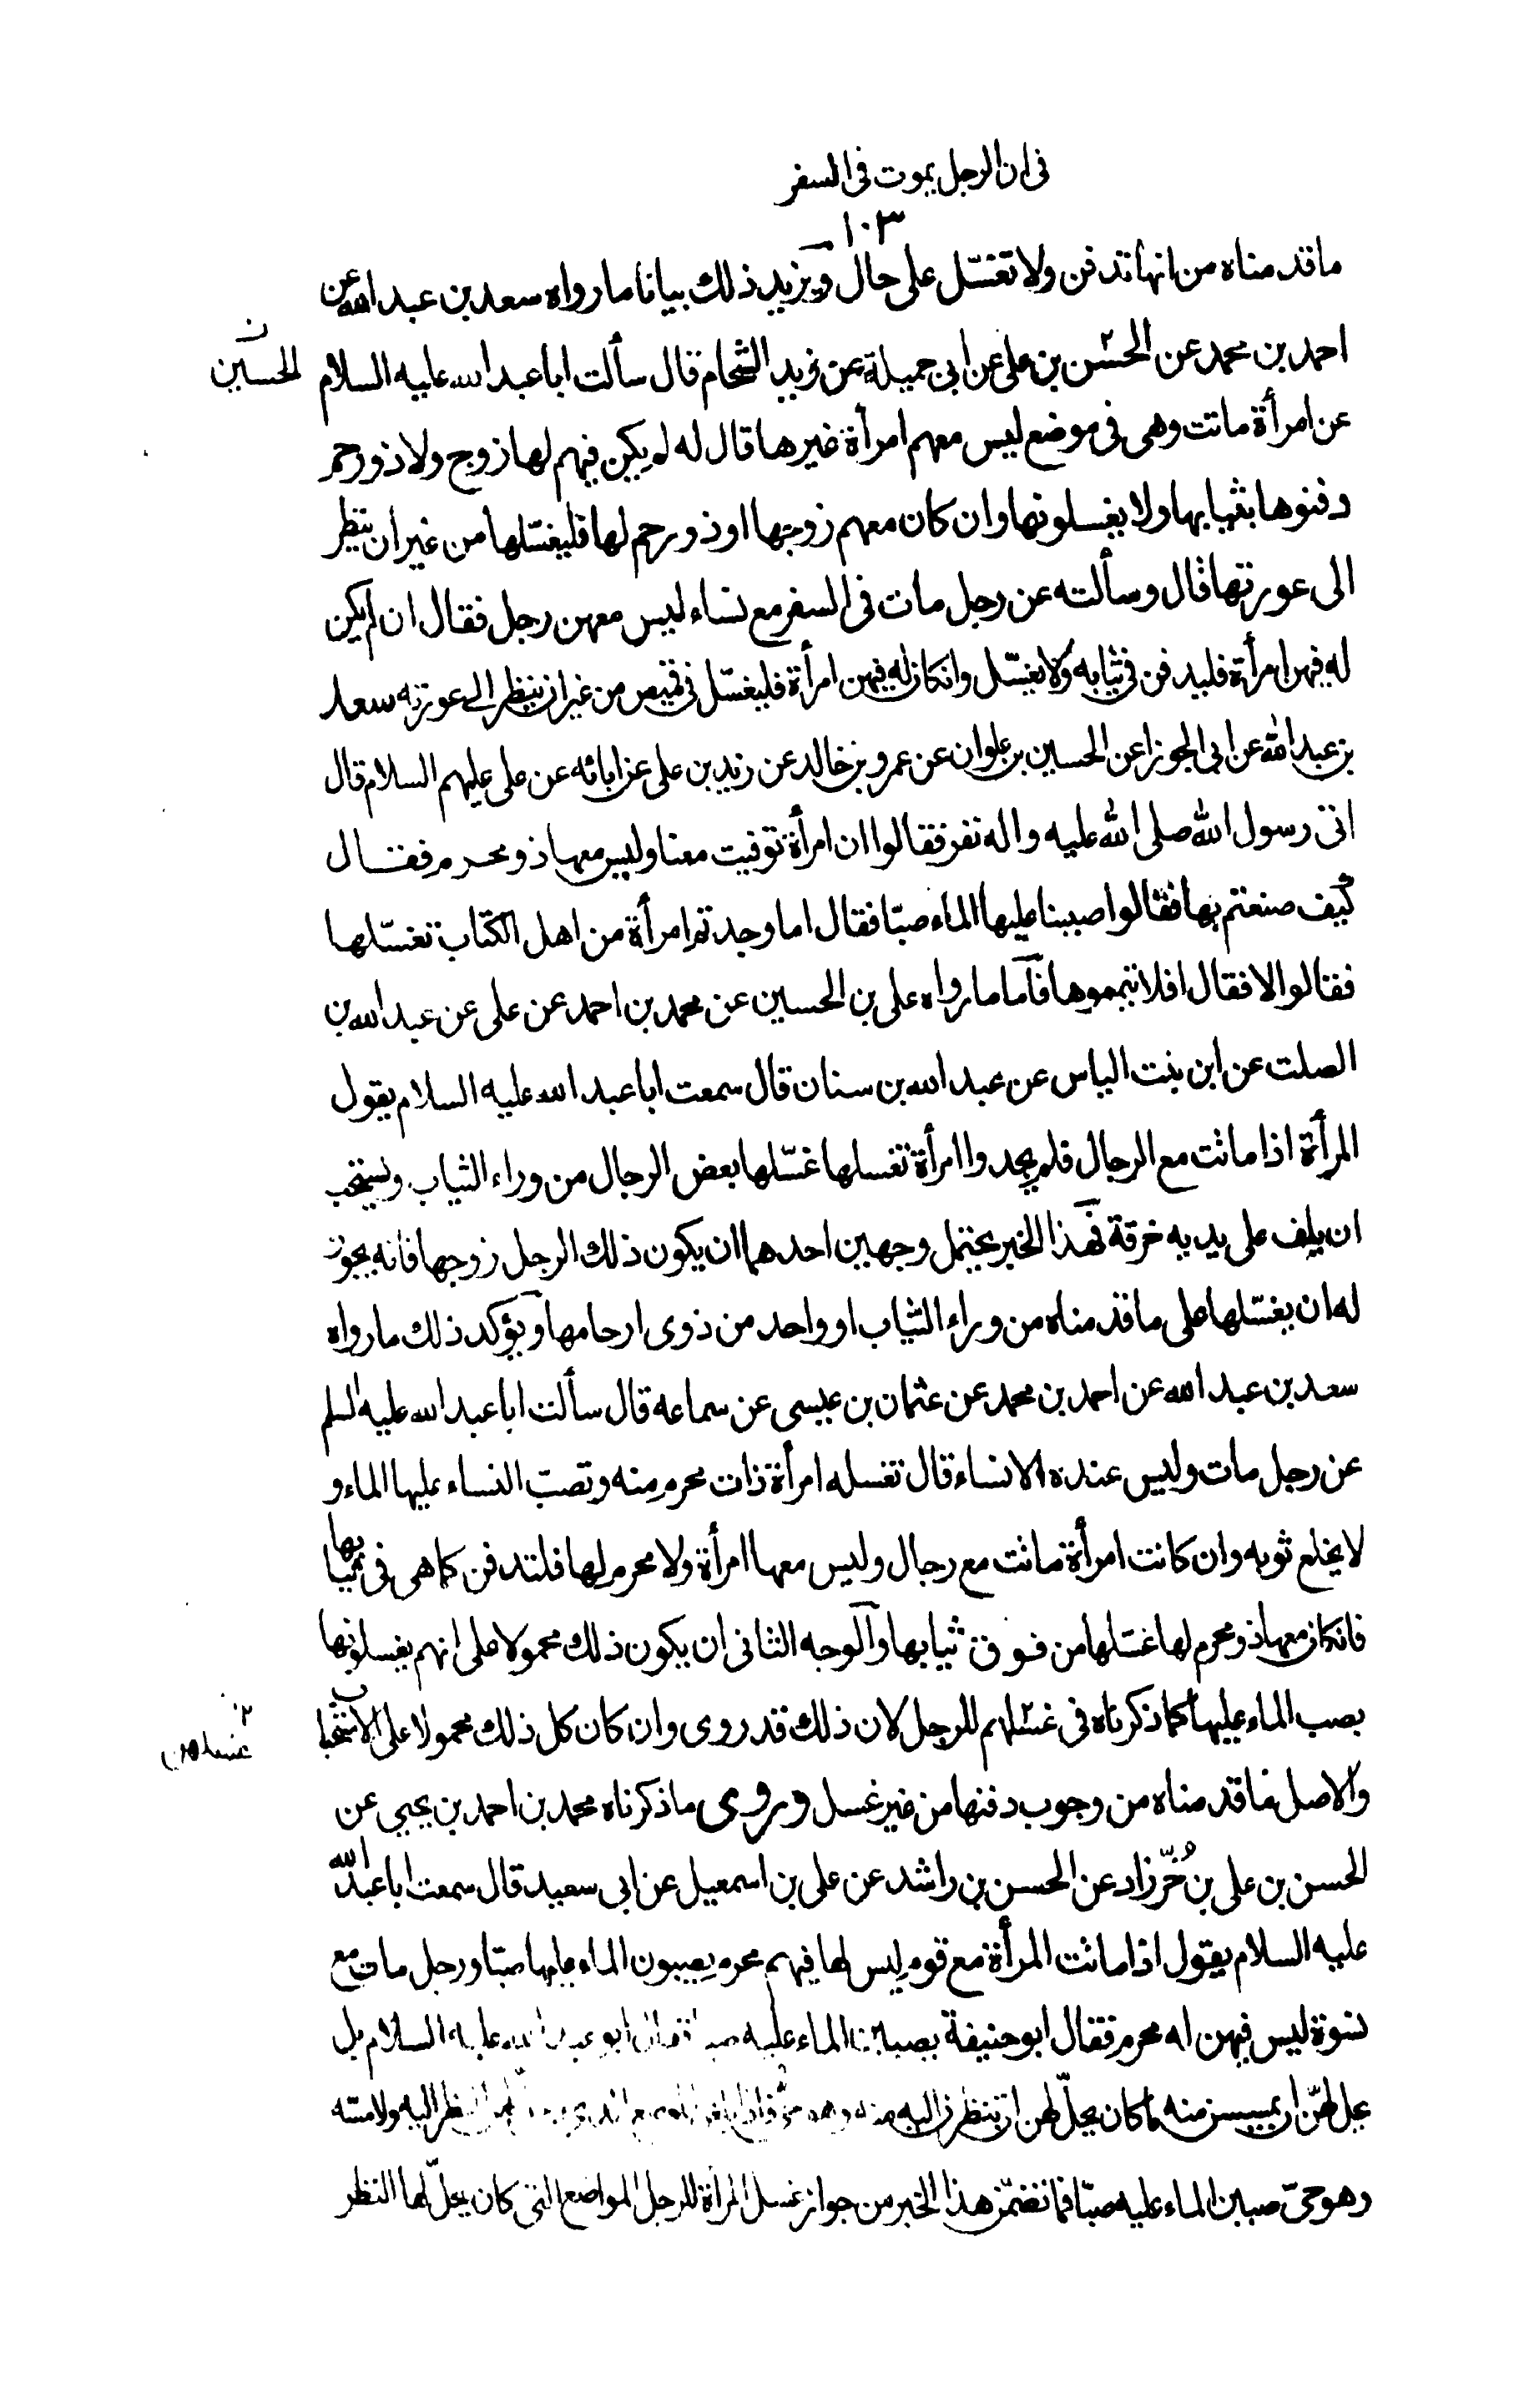 فى ان الرجل يموت فى السفر
١٠٣
ما قدمناه من انها تدفن ولا تغسّل على حال ويزيد ذلك بيانا ما رواه سعد بن عبد الله عن
احمد بن محمد عن الحسن بن على عن ابى جميلة عن زيد الشحام قال سألت ابا عبد الله عليه السلام
الحسين
عن امرأة ماتت وهى فى موضع ليس معهم امرأة غيرها قال له لم يكن فيهم لها زوج ولا ذو رحم
دفنوها بثيابها ولا يغسلونها وان كان معهم زوجها او ذو رحم لها فليغسّلها من غير ان ينظر
الى عورتها قال وسألته عن رجل مات فى السفر مع نساء ليس معهن رجل فقال ان لم يكن
له فيهن امرأة فليدفن فى ثيابه ولا يغسّل وانكان له فيهن امرأة فليغسّل فى قميص من غير ان ينظر الى عورته سعد
بن عبد الله عن ابى الجوزا عن الحسين بن علوان عن عمرو بن خالد عن زيد بن على عن ابائه عن على عليهم السلام قال
اتى رسول الله صلى الله عليه واله نفر فقالوا ان امرأة توفيت معنا وليس معها ذو محرم فقال
كيف صنعتم بها فقالوا صببنا عليها الماء صبّا فقال اما وجدتم امرأة من اهل الكتاب تغسّلها
فقالوا لا فقال افلا تيمموها فاما ما رواه على بن الحسين عن محمد بن احمد عن على عن عبد الله بن
الصلت عن ابن بنت الياس عن عبد الله بن سنان قال سمعت ابا عبد الله عليه السلام يقول
المرأة اذا ماتت مع الرجال فلم يجدوا امرأة تغسلها غسّلها بعض الرجال من وراء الثياب ويستحب
ان يلف على يديه خرقة فهذا الخبر يحتمل وجهين احدهما ان يكون ذلك الرجل زوجها فانه يجوز
له ان يغسّلها على ما قدمناه من وراء الثياب او واحد من ذوى ارحامها ويؤكد ذلك ما رواه
سعد بن عبد الله عن احمد بن محمد عن عثمان بن عيسى عن سماعه قال سألت ابا عبد الله عليه السلم
عن رجل مات وليس عنده الا نساء قال تغسله امرأة ذات محرم منه وتصبّ النساء عليها الماء و
لا يخلع ثوبه وان كانت امرأة ماتت مع رجال وليس معها امرأة ولا محرم لها فلتدفن كما هى فى ثيابها
فانكان معها ذو محرم لها غسّلها من فوق ثيابها والوجه الثانى ان يكون ذلك محمولا على انهم يغسلونها
بصب الماء عليها كما ذكرناه فى غسلهم للرجل لان ذلك قد روى وان كان كل ذلك محمولا على الاستحباب
غسلهن
والاصل ما قدمناه من وجوب دفنها من غير غسل وروى ما ذكرناه محمد بن احمد بن يحيى عن
الحسن بن على بن خُرّزاد عن الحسن بن راشد عن على بن اسمعيل عن ابى سعيد قال سمعت ابا عبد الله
عليه السلام يقول اذا ماتت المرأة مع قوم ليس لها فيهم محرم يصبون الماء عليها صبّا ورجل مات مع
نسوة ليس فيهن له محرم فقال ابو حنيفة يصببن الماء عليه صبا فقال ابو عبد الله عليه السلام بل
يحل لهنّ ان يمسسن منه ما كان يحلّ لهن ان ينظرن اليه منه وهو حىّ فاذا النظر اليه ولا مسّه
وهو حىّ صببن الماء عليه صبّا فما تضمّن هذا الخبر من جواز غسل المرأة للرجل المواضع التى كان يحلّ لها النظر